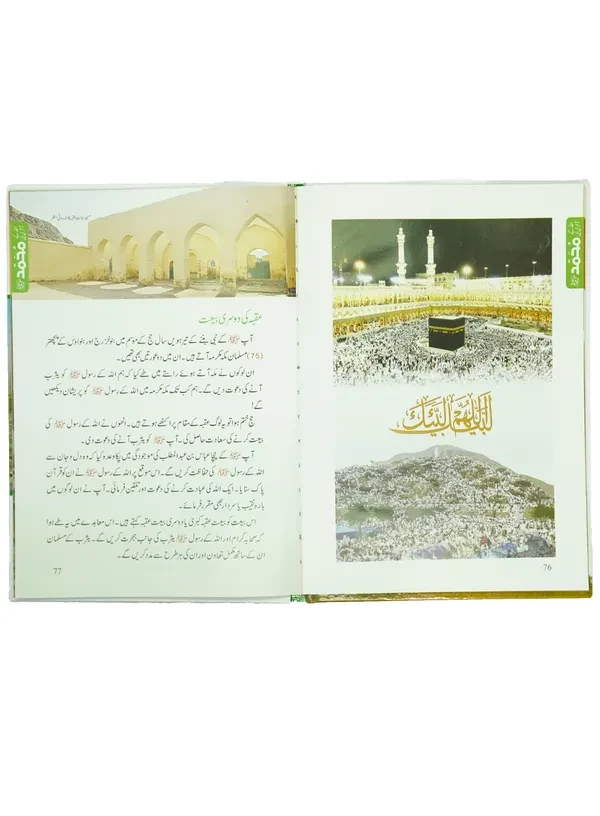 محمد ﷺ
لبیک اللہم لبیک
76
محمد ﷺ
عقبہ کی دوسری بیعت
آپ ﷺ کے نبی بننے کے تیرہویں سال حج کے موسم میں بنو خزرج اور بنو اوس کے پچھتر
(75) مسلمان مکہ مکرمہ آتے ہیں۔ ان میں دو عورتیں بھی تھیں۔
ان لوگوں نے مکہ آتے ہوئے راستے میں طے کیا کہ ہم اللہ کے رسول ﷺ کو یثرب
آنے کی دعوت دیں گے۔ ہم کب تک مکہ مکرمہ میں اللہ کے رسول ﷺ کو پریشان دیکھیں
گے!
حج ختم ہوا تو یہ لوگ عقبہ کے مقام پر اکٹھے ہوتے ہیں۔ انھوں نے اللہ کے رسول ﷺ کی
بیعت کرنے کی سعادت حاصل کی۔ آپ ﷺ کو یثرب آنے کی دعوت دی۔
آپ ﷺ کے چچا عباس بن عبدالمطلب کی موجودگی میں پکا وعدہ کیا کہ وہ دل و جان سے
اللہ کے رسول ﷺ کی حفاظت کریں گے۔ اس موقع پر اللہ کے رسول ﷺ نے ان کو قرآن
پاک سنایا۔ ایک اللہ کی عبادت کرنے کی دعوت اور تلقین فرمائی۔ آپ نے ان لوگوں میں
بارہ نقیب یا سردار بھی مقرر فرمائے۔
اس بیعت کو بیعت عقبہ کبریٰ یا دوسری بیعت عقبہ کہتے ہیں۔ اس معاہدے میں یہ طے ہوا
کہ صحابہ کرام اور اللہ کے رسول ﷺ یثرب کی جانب ہجرت کریں گے۔ یثرب کے مسلمان
ان کے ساتھ مکمل تعاون اور ان کی ہر طرح سے مدد کریں گے۔
77